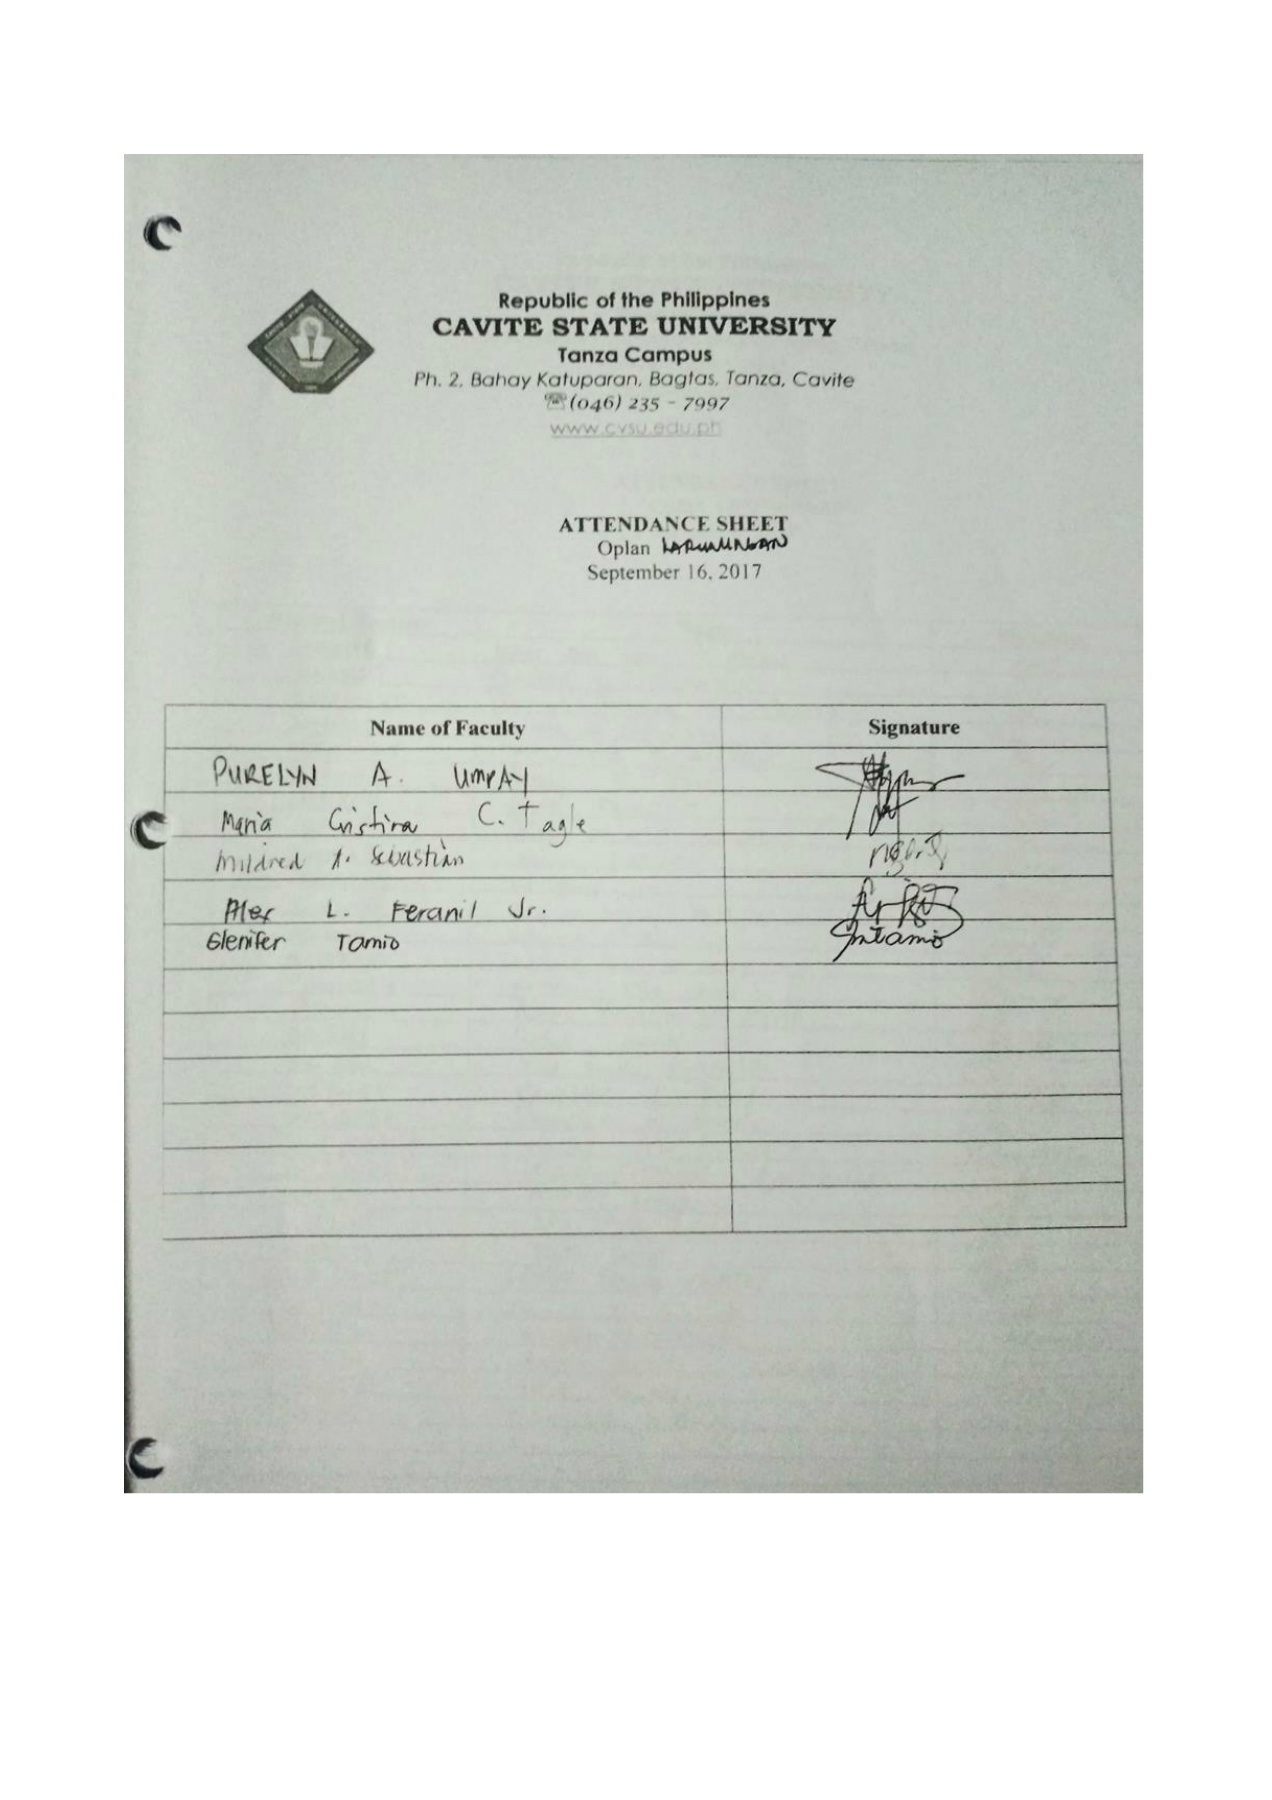 Republic of the Philippines
CAVITE STATE UNIVERSITY
Tanza Campus
Ph. 2, Bahay Katuparan, Bagtas, Tanza, Cavite
☏(046) 235 - 7997
www.cvsu.edu.ph
ATTENDANCE SHEET
Oplan
September 16, 2017
Name of Faculty Signature
PURELYN A. UMPAY
Maria Cristina C. Tagle
Mildred A. Sebastian
L. Feranil Jr.
Glenifer Tamio